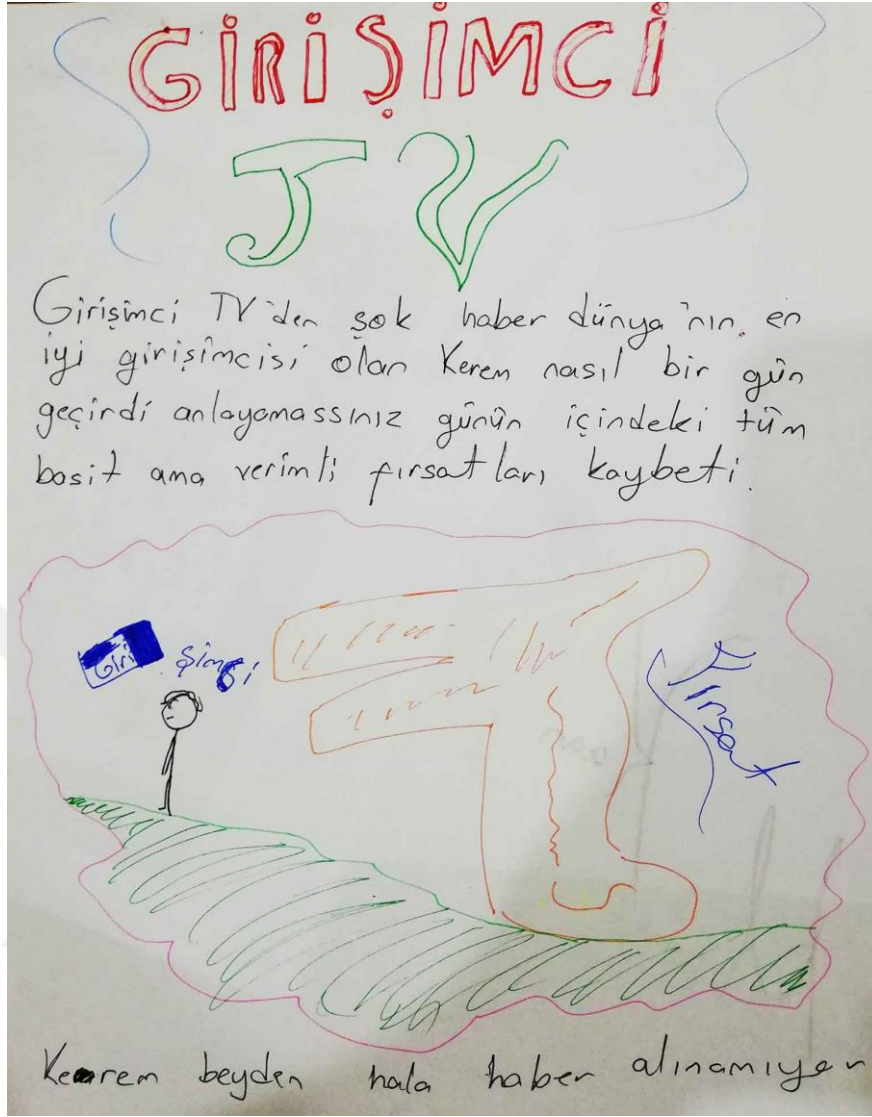 GİRİŞİMCİ
TV
Girişimci TV'den şok haber dünya'nın en
iyi girişimcisi olan Kerem nasıl bir gün
geçirdi anlayamassınız günün içindeki tüm
basit ama verimli fırsatları kaybeti.
Giri şimci
Fırsat
Kerem beyden hala haber alınamıyor